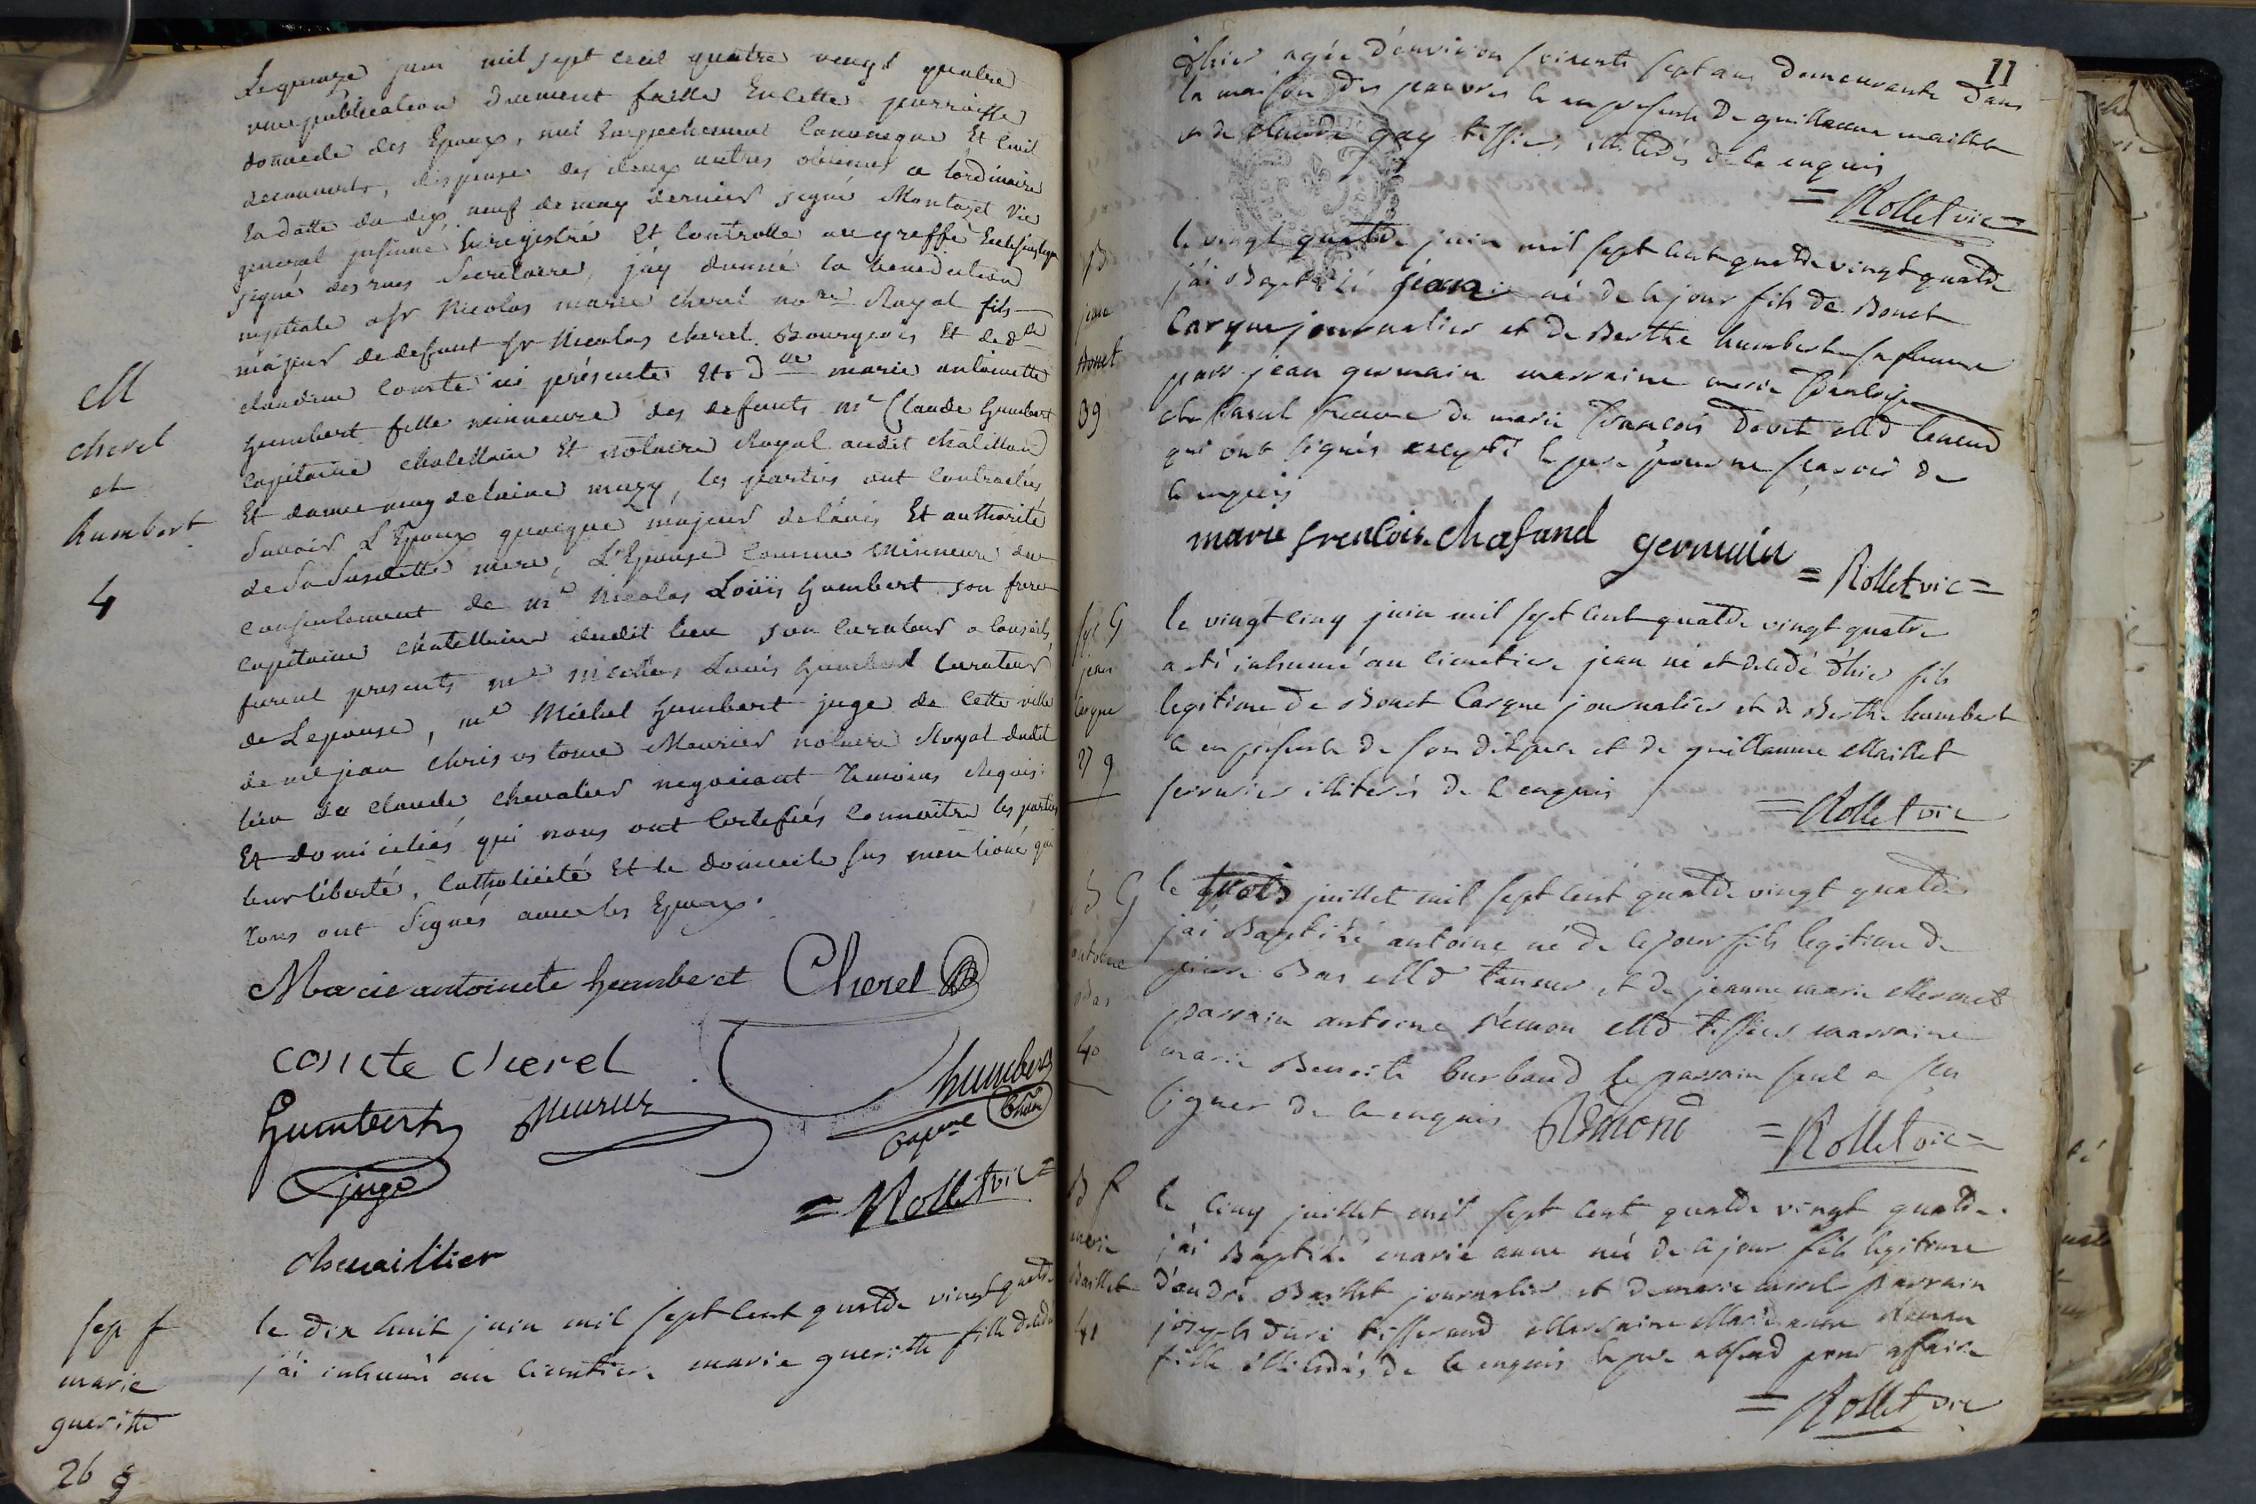 Le quinze juin mil sept cent quatre vingt quatre
une publication duement faitte en cette parroisse
domicile des Epoux, nul empechement canonique et civil
decouvert, dispense des deux autres obtenue a l'ordinaire
la datte du dix neuf de may dernier signé Montazet vic
general insinué enregistré et controllé au greffe
signé secretaire, j'ay donné la benediction
nuptiale a sr Nicolas marie cherel nore Royal fils
majeur de defunt sr Nicolas cherel Bourgeois et de dlle
claudine comte ici présente et. Dlle marie antoinette
humbert fille mineure des defunts me Claude humbert
capitaine chatellain et notaire Royal audit chatillon
et dame magdelaine muzy, les parties ont contractées
savoir L'Epoux quoique majeur de l'avis et authorité
de sa susditte mere, L'Epouse comme mineure du
consentement de me Nicolas Louis humbert son frere
capitaine chatellain dudit lieu son curateur a conseils,
furent presents me Nicolas Louis humbert curateur
de Lepouse, me Michel humbert juge de cette ville
de me jean chrisostome Meurier notaire Royal dudit
lieu de claude chevalier negociant temoins Requis
Et domiciliés qui nous ont certifiés connoitre les parties
leur liberté, catholicité et le domicile sus mentioné qui
tous ont signés avec les Epoux.
M
cherel
et
humbert
4
Marie antoinete humbert Cherel
comte cherel
humbert
humbert meurier
capne
juge
= Rollet vic =
chevaillier
sep f
marie
gueritte
26
le dix huit juin mil sept cent quatre vingt quatre
j'ai inhumé au cimetiere marie gueritte fille decedée
11
d'hier agée d'environ soixante sept ans demeurante dans
la maison des pauvres ce en presence de guillaume maillet
et de claude gay tissier illiterés de ce enquis
= Rollet vic =
B
jean
Bonet
39
le vingt quatre juin mil sept cent quatre vingt quatre
j'ai Baptisé jean né de ce jour fils de Bonet
Carque journalier et de Berthe humbert sa femme
parr jean germain marraine marie françoise
chafaud femme de marie françois Davit Md taneur
qui ont signés excepté le pere pour ne sçavoir de
ce enquis
marie frencoise chafand germain = Rollet vic =
sep G
jean
Carque
27 g
le vingt cinq juin mil sept cent quatre vingt quatre
a été inhumé au cimetiere jean né et decedé d'hier fils
legitime de Bonet Carque journalier et de Berthe humbert
ce en presence de son dit pere et de guillaume Maillet
serrurier illiterés de ce enquis
= Rollet vic
B G
antoine
Bas
40
le trois juillet mil sept cent quatre vingt quatre
j'ai Baptisé antoine né de ce jour fils legitime de
pierre Bas Md tanneur et de jeanne marie Mermet
parrain antoine Rémon Md tissier marraine
marie Benoite Curbaud le parrain seul a sçu
signer de ce enquis Rémond = Rollet vic =
B f
marie
Baillet
41
le cinq juillet mil sept cent quatre vingt quatre
j'ai Baptisé marie anne née de ce jour fille legitime
d'andré Baillet journalier et de marie parrain
joseph tisserand Marraine Marie anne
fille illiterés de ce enquis le pere absend pour affaire
= Rollet vic